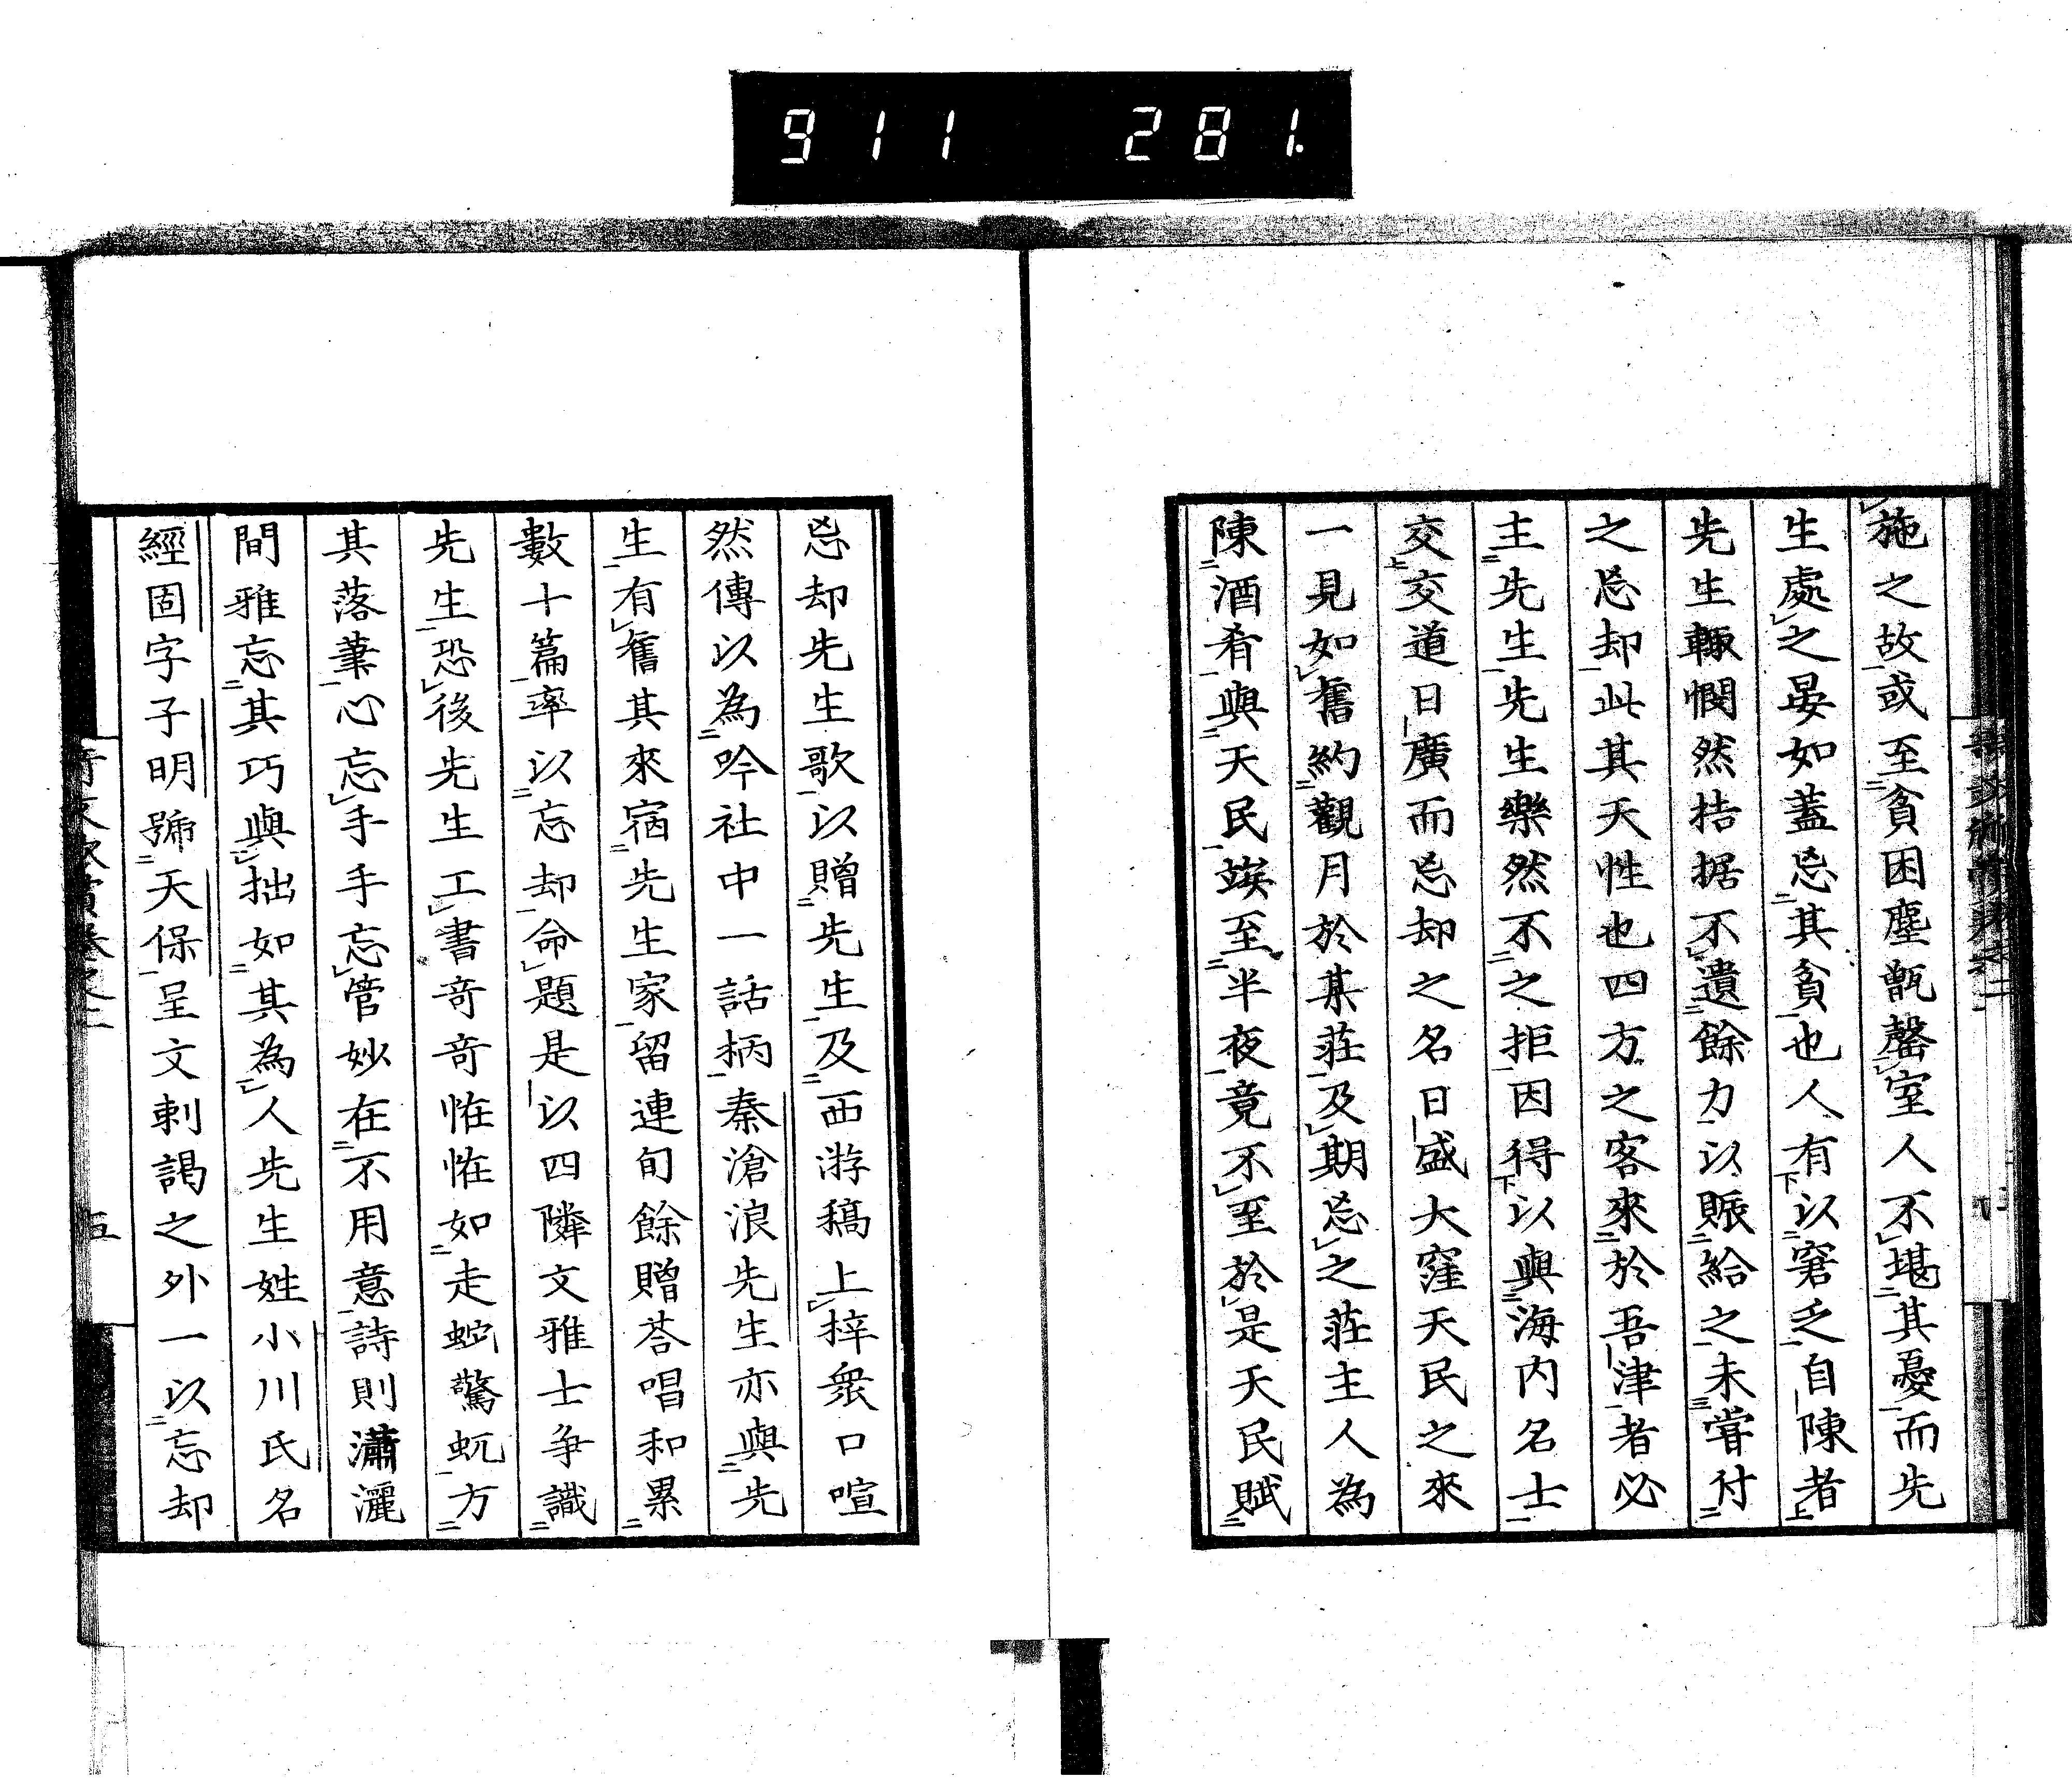 911 281.
施之故或至貧困塵甑罄室人不堪其憂而先
生處之晏如蓋忘其貧也人有以窘乏自陳者
先生輙憫然拮据不遺餘力以賑給之未甞付
之忘却此其天性也四方之客來於吾津者必
主先生先生樂然不之拒因得以與海内名士
交交道日廣而忘却之名日盛大窪天民之來
一見如舊約觀月於某莊及期忘之莊主人為
陳酒肴與天民竢至半夜竟不至於是天民賦
忘却先生歌以贈先生及西游稿上梓衆口喧
然傳以為吟社中一話柄秦滄浪先生亦與先
生有舊其來宿先生家留連旬餘贈荅唱和累
數十篇率以忘却命題是以四隣文雅士争識
先生恐後先生工書奇奇恠恠如走蛇驚虬方
其落葦心忘手手忘管妙在不用意詩則瀟灑
間雅忘其巧與拙如其為人先生姓小川氏名
經固字子明號天保呈文刺謁之外一以忘却
五